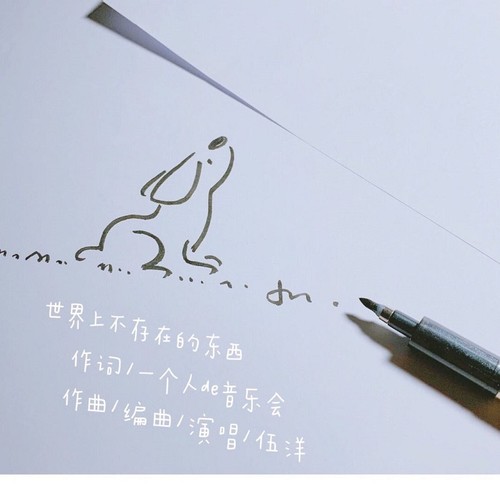 世界上不存在的东西
作词/一个人de音乐会
作曲/编曲/演唱/伍洋